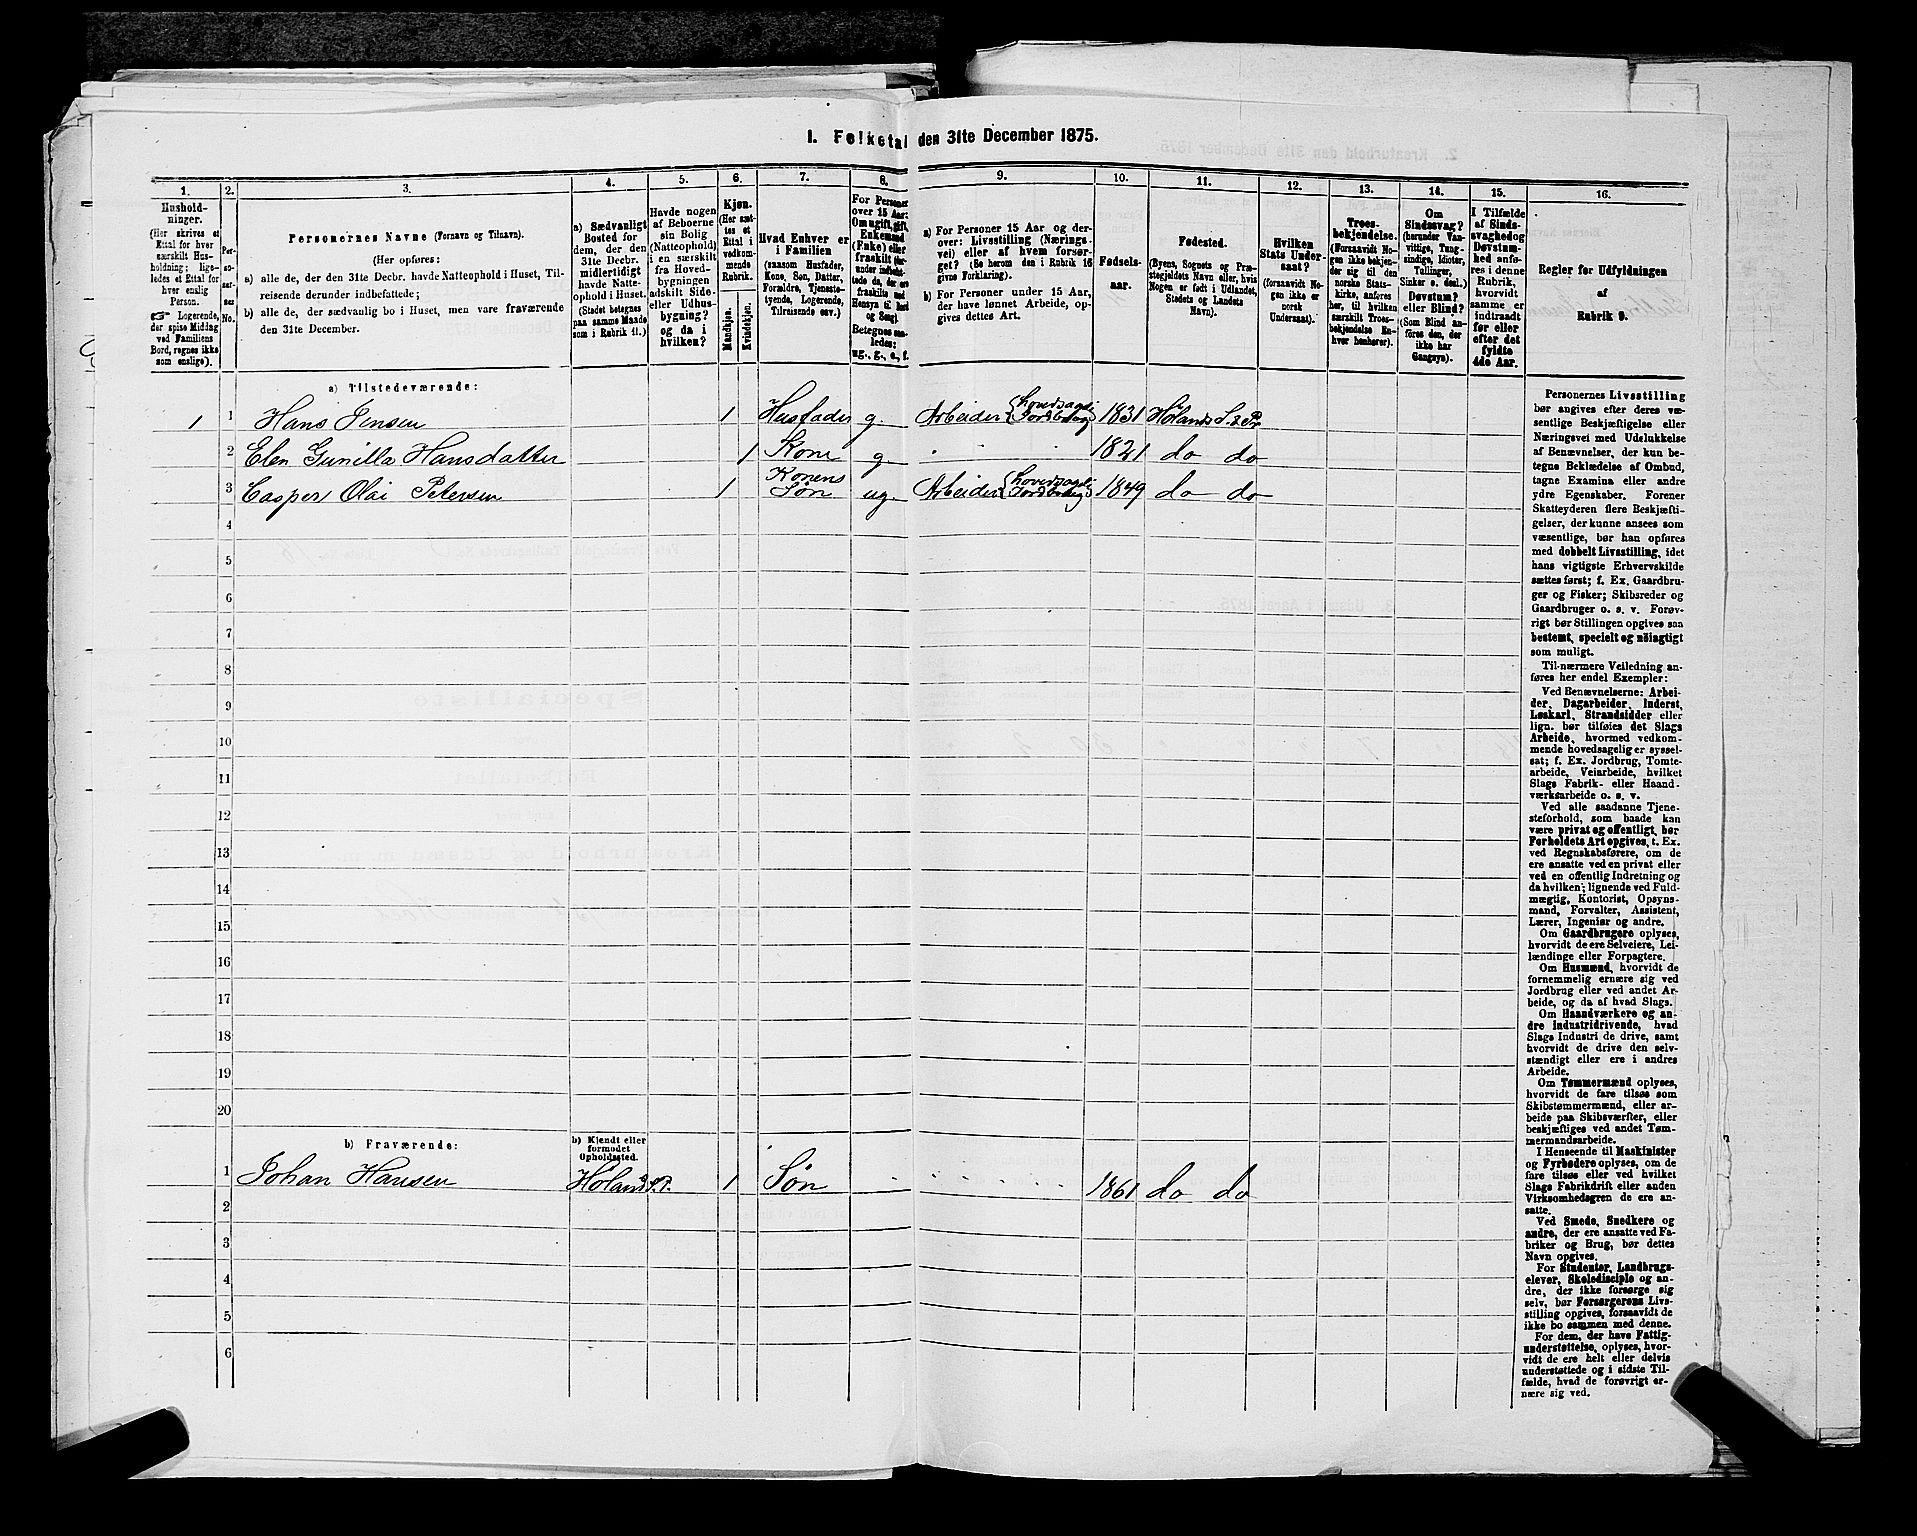 1. Folketal den 31te December 1875.
1. 2. 3. 4. 5. 6. 7. 8. 9. 10. 11. 12. 13. 14. 15. 16.
Hushold-
ninger.
(Her skrives et
Ettal for hver
særskilt Hus-
holdning; lige-
ledes et Ettal for
hver enslig
Person.
☞ Logerende,
der spise Middag
ved Familiens
Bord, regnes ikke
som enslige).
Per-
so-
ner-
nes
No.
Personernes Navne (Fornavn og Tilnavn).
(Her opføres:
a) alle de, der den 31te Decbr. havde Natteophold i Huset, Til-
reisende derunder indbefattede;
b) alle de, der sædvanlig bo i Huset, men vare fraværende
den 31te December.
a) Sædvanligt
Bosted for
dem, der den
31te Decbr.
midlertidigt
havde Natte-
ophold i Huset.
(Stedet betegnes
paa samme Maade
som i Rubrik 11.)
Havde nogen
af Beboerne
sin Bolig
(Natteophold)
i en særskilt
fra Hoved-
bygningen
adskilt Side-
eller Udhus-
bygning?
og da i
hvilken?
Kjøn.
(Her sæt-
tes et
Ettal i
vedkom-
mende
Rubrik.
Mandkjøn.
Kvindekjøn.
Hvad Enhver er
i Familien
(saasom Husfader,
Kone, Søn, Datter,
Forældre, Tjeneste-
tyende, Logerende,
Tilreisende osv.)
For Personer
over 15 Aar:
Om ugift, gift,
Enkemand
(Enke) eller
fraskilt
Betegnes saa-
ledes:
ug., g., e., f.
a) For Personer 15 Aar og der-
over: Livsstilling (Nærings-
vei) eller af hvem forsør-
get? (Se herom den i Rubrik 16
givne Forklaring).
b) For Personer under 15 Aar,
der have lønnet Arbeide, op-
gives dettes Art.
Fødsels-
aar.
Fødested.
(Byens, Sognets og Præ-
stegjeldets Navn eller, hvis
Nogen er født i Udlandet,
Stedets og Landets
Navn).
Hvilken
Stats Under-
saat?
(forsaavidt No-
gen ikke er
norsk
Undersaat).
Troes-
bekjendelse.
(Forsaavidt No-
gen ikke bekjen-
der sig til den
norske Stats-
kirke, anføres
her, til hvilken
særskilt Troes-
bekjendelse En-
hver henhører).
Om
Sindssvag?
(herunder Van-
vittige, Idioter,
Tullinger,
Sinker o. desl.)
Døvstum?
eller Blind?
(Som Blind an-
føres den, der
ikke har
Gangsyn).
I Tilfælde
af Sinds-
svaghed og
Døvstum-
hed anfø-
res i denne
Rubrik,
hvorvidt
samme er
indtraadt
før eller
efter det
fyldte
4de Aar.
Regler for Udfyldningen
af
Rubrik 9.
a) Tilstedeværende:
1 1 Hans Jensen 1 Husfader g. Arbeider {hovedsagelig Jordbrug} 1831 Hølands S. & Pr.
2 Elen Gunilla Hansdatter 1 Kone g. 1821 do do
3 Casper Olai Petersen 1 Konens Søn ug. Arbeider {hovedsagelig Jordbrug} 1849 do do
4
5
6
7
8
9
10
11
12
13
14
15
16
17
18
19
20
b) Fraværende:
b) Kjendt eller
formodet
Opholdssted.
1 Johan Hansen Høland 1 Søn 1861 do do
2
3
4
5
6
Personernes Livsstilling
bør angives efter deres væ-
sentlige Beskjæftigelse eller
Næringsvei med Udelukkelse
af Benævnelser, der kun be-
tegne Beklædelse af Ombud,
tagne Examina eller andre
ydre Egenskaber. Forener
Skatteyderen flere Beskjæfti-
gelser, der kunne ansees som
væsentlige, bør han opføres
med dobbelt Livsstilling, idet
hans vigtigste Erhvervskilde
sættes først; f. Ex. Gaardbru-
ger og Fisker; Skibsreder og
Gaardbruger o. s. v. Forøv-
rigt bør Stillingen opgives saa
bestemt, specielt og nöiagtigt
som muligt.
Til nærmere Veiledning an-
føres her endel Exempler:
Ved Benævnelserne: Arbei-
der, Dagarbeider, Inderst,
Løskarl, Strandsidder eller
lign. bør tilføies det Slags
Arbeide, hvormed vedkom-
mende hovedsagelig er syssel-
sat; f. Ex. Jordbrug, Tomte-
arbeide, Veiarbeide, hvilket
Slags Fabrik- eller Haand-
værksarbeide o. s. v.
Ved alle saadanne Tjene-
steforhold, som baade kan
være privat og offentligt, bør
Forholdets Art opgives, t. Ex.
ved Regnskabsførere, om de
ere ansatte ved en privat eller
ved en offentlig Indretning og
da hvilken; lignende ved Fuld-
mægtig, Kontorist, Opsyns-
mand, Forvalter, Assistent,
Lærer, Ingeniør og andre.
Om Gaardbrugere oplyses,
hvorvidt de ere Selveiere, Lei-
lændinge eller Forpagtere.
Om Husmænd, hvorvidt de
fornemmelig ernære sig ved
Jordbrug eller ved andet Ar-
beide, og da af hvad Slags.
Om Haandværkere og an-
dre Industridrivende, hvad
Slags Industri de drive, samt
hvorvidt de drive den selv-
stændigt eller ere i andres
Arbeide.
Om Tømmermænd oplyses,
hvorvidt de fare tilsøs som
Skibstømmermænd, eller ar-
beide paa Skibsværfter, eller
beskjæftiges ved andet Tøm-
mermandsarbeide.
I Henseende til Maskinister
og Fyrbødere oplyses, om de
fare tilsøs eller ved hvilket
Slags Fabrikdrift eller anden
Virksomhedsgren de ere an-
satte.
Ved Smede, Snedkere og
andre, der ere ansatte ved Fa-
briker og Brug, bør dettes
Navn opgives.
For Studenter, Landbrugs-
elever, Skoledisciple og an-
dre, der ikke forsørge sig
selv, bør Forsørgerens Livs-
stilling opgives, forsaavidt de
ikke bo sammen med denne.
For dem, der have Fattig-
understøttelse, oplyses, hvor-
vidt de ere helt eller delvis
understøttede og i sidste Til-
fælde, hvad de forøvrigt er-
nære sig ved.